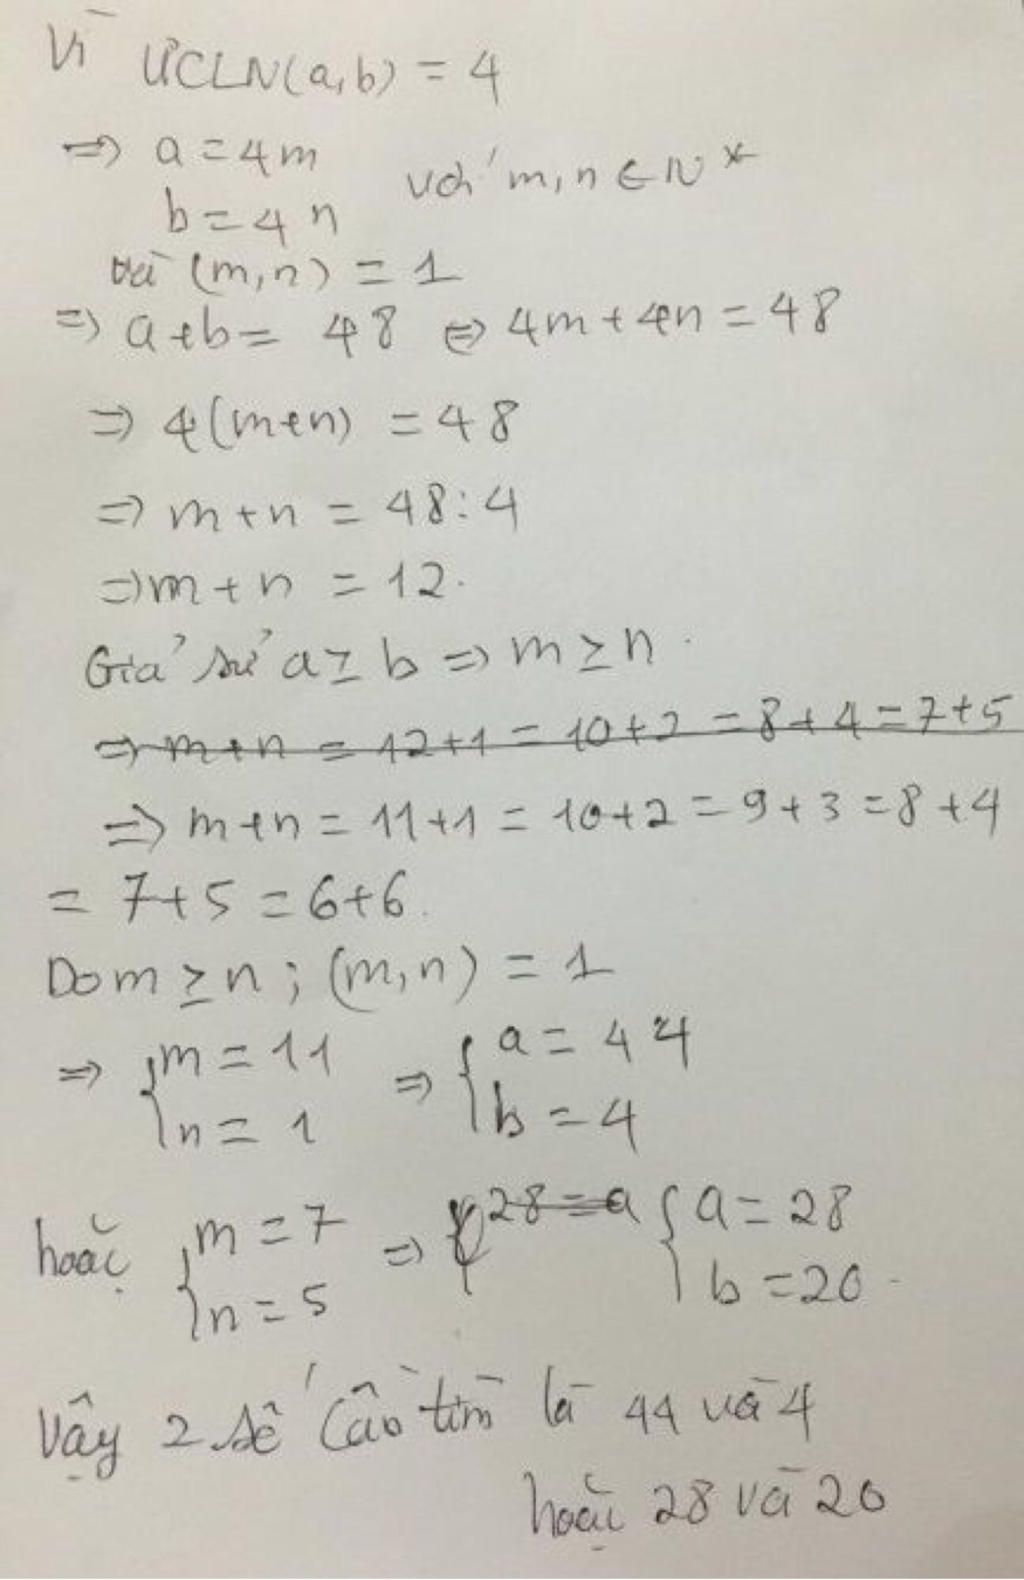 Vì ƯCLN(a,b) = 4
=> a = 4m
với m,n ∈ N*
b = 4n
và (m,n) = 1
=> a+b = 48 <=> 4m + 4n = 48
=> 4(m+n) = 48
=> m+n = 48:4
=> m+n = 12.
Giả sử a ≥ b => m ≥ n.
=> m+n = 12+1 = 10+2 = 8+4 = 7+5
=> m+n = 11+1 = 10+2 = 9+3 = 8+4
= 7+5 = 6+6.
Do m ≥ n; (m,n) = 1
=> { m = 11 => { a = 44
n = 1 b = 4
hoặc { m = 7 => { 28 = a { a = 28
n = 5 b = 20.
Vậy 2 số cần tìm là 44 và 4
hoặc 28 và 20